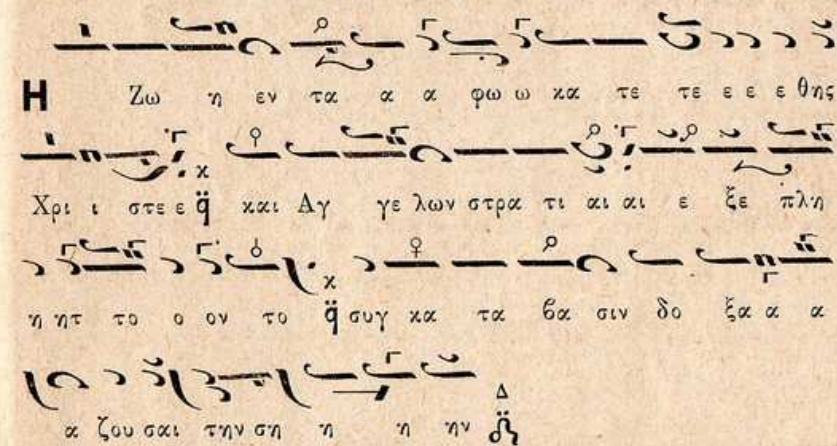 Η Ζω η εν τα α α φω ω κα τε τε ε ε ε θης
Χρι ι στε ε κ q̈ και Αγ γε λων στρα τι αι αι ε ξε πλη
η ητ το ο ον το κ q̈ συγ κα τα βα σιν δο ξα α α
α ζου σαι την ση η η ην Δ